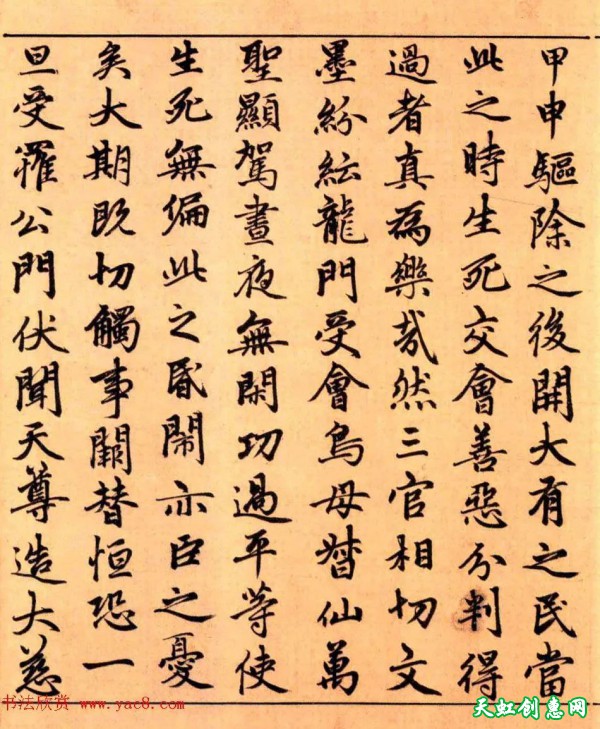 甲申驅除之後開大有之民當
此之時生死交會善惡分判得
過者真為樂哉然三官相切文
墨紛紜龍門受會鳥母督仙萬
聖顯駕晝夜無閑功過平等使
生死無偏此之昏鬧亦臣之憂
矣大期既切觸事闕替恒恐一
旦受罹公門伏聞天尊造大慈
书法欣赏 www.yac8.com
天虹创惠网